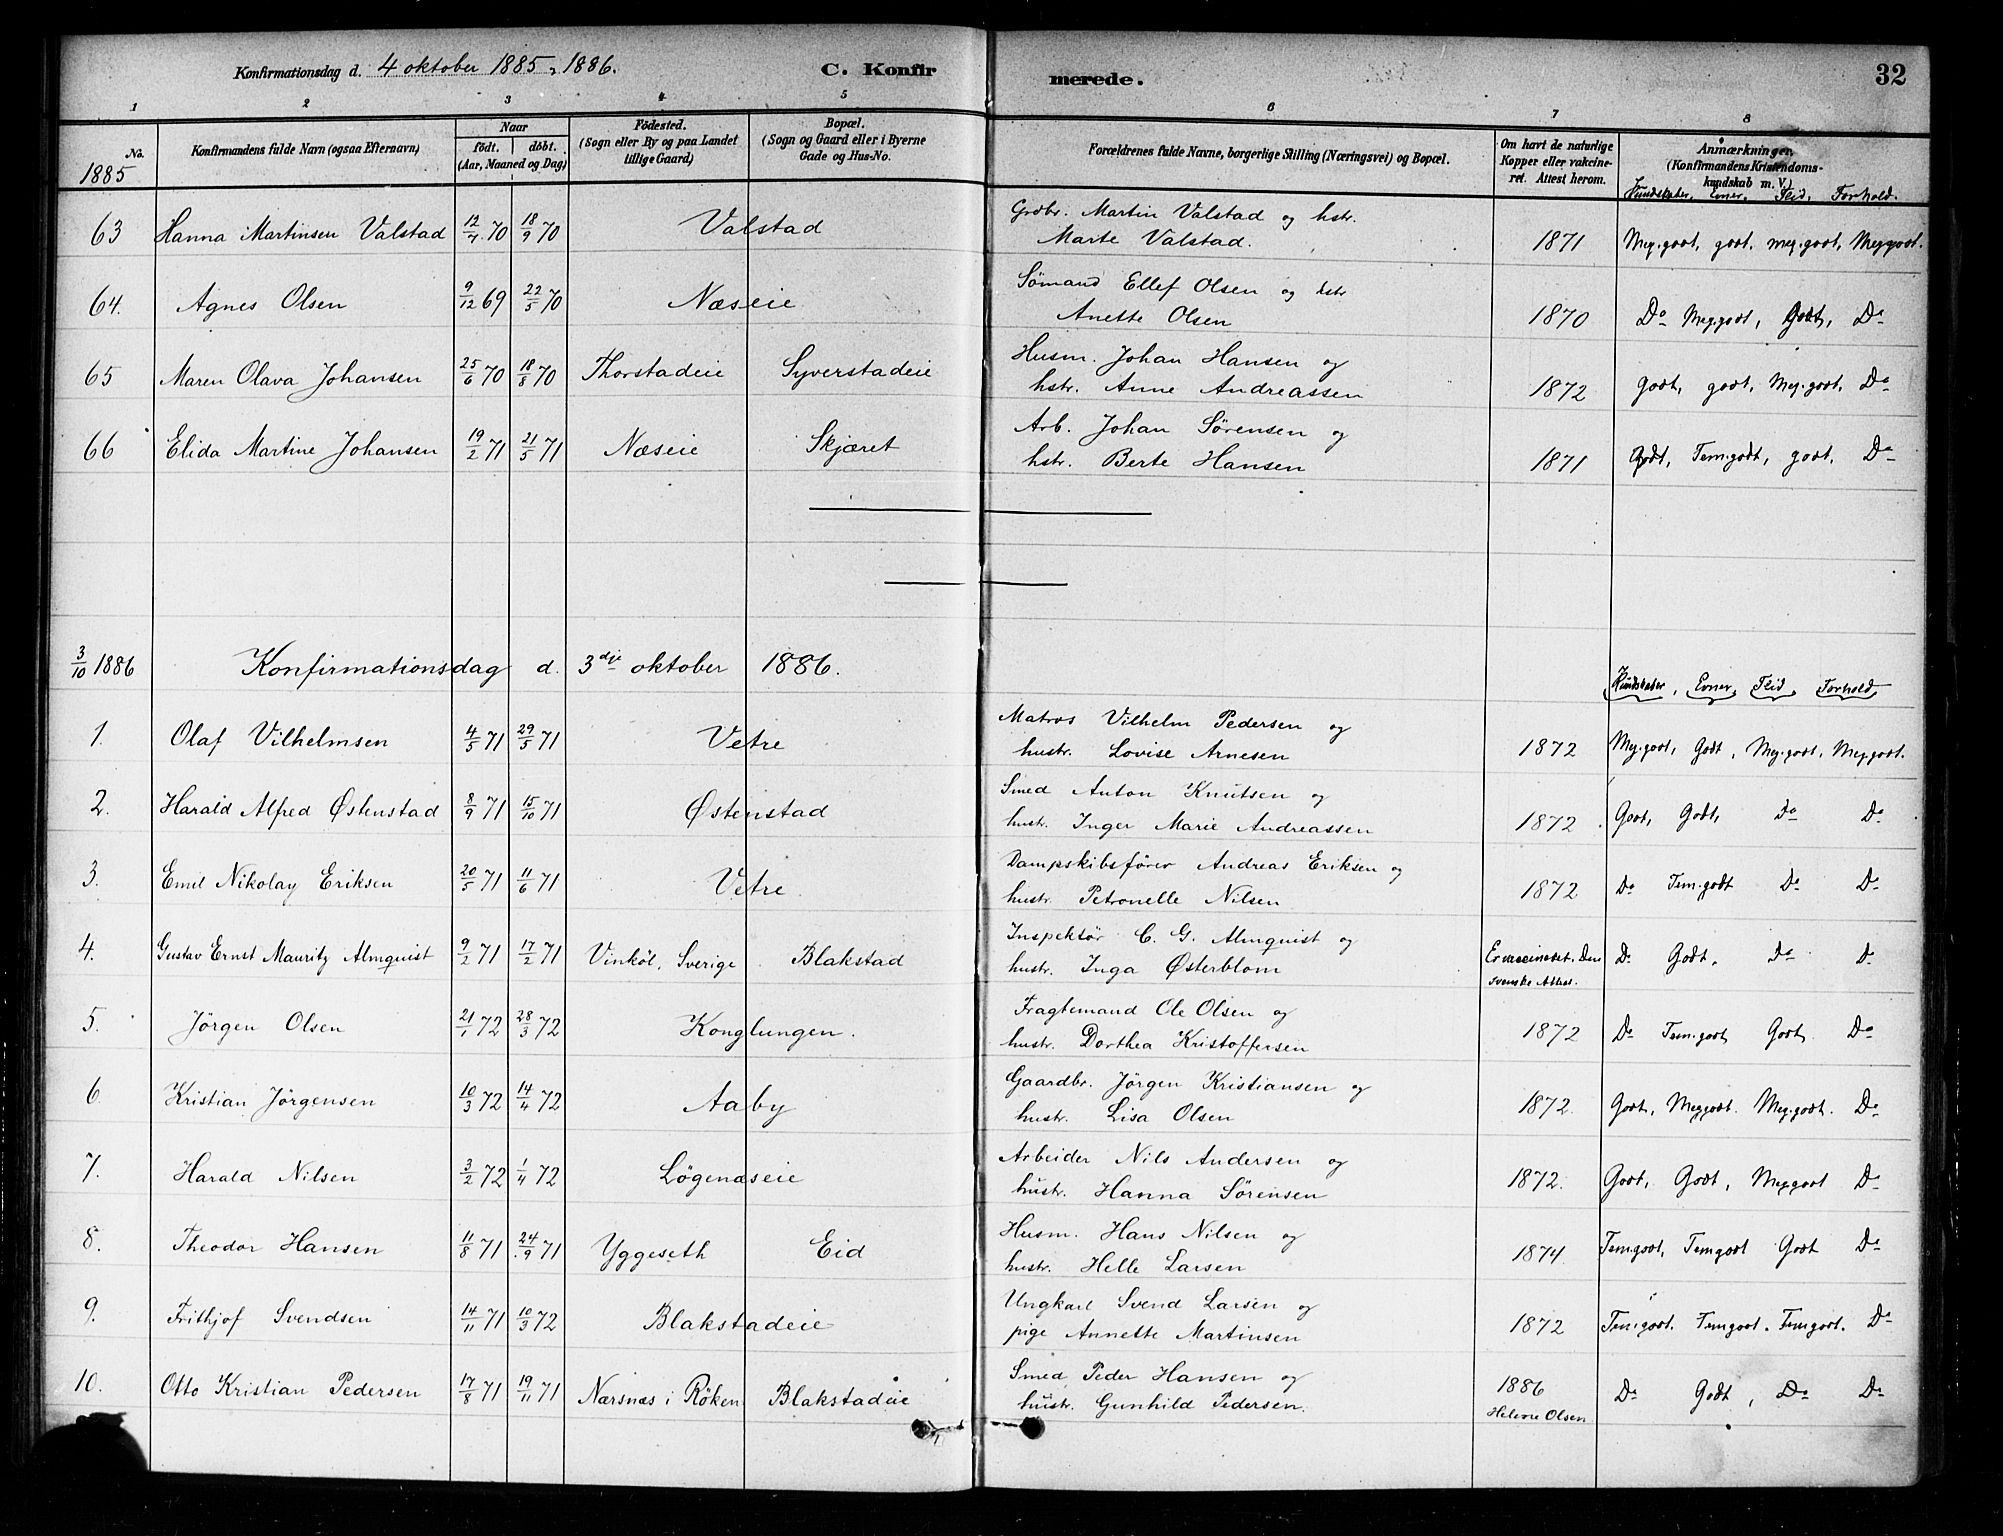 Konfirmationsdag d. 4 oktober 1885, 1886. C. Konfir merede. 32
1 2 3 4 5 6 7 8
No. 1885
Konfirmandens fulde Navn (ogsaa Efternavn)
Naar
födt. döbt.
(Aar, Maaned og Dag)
Födested.
(Sogn eller By og paa Landet
tillige Gaard)
Bopæl.
(Sogn og Gaard eller i Byerne
Gade og Hus-No.
Forældrenes fulde Navne, borgerlige Stilling (Næringsvei) og Bopæl.
Om havt de naturlige
Kopper eller vakcine-
ret. Attest herom.
Anmærkninger
(Konfirmandens Kristendoms-
kundskab m. V.)
Kundskaber, Evner, Flid, Forhold.
63 Hanna Martinsen Valstad 12/7 70 18/9 70 Valstad Grdbr. Martin Valstad og hstr.
Marte Valstad. 1871 Meg.godt, godt, meg.godt, Meg godt.
64. Agnes Olsen 9/12 69 22/5 70 Næseie Sømand Ellef Olsen og hstr
Anette Olsen 1870 Do Meg.godt, Godt, Do
65 Maren Olava Johansen 25/6 70 18/8 70 Thorstadeie Syverstadeie Husm. Johan Hansen og
hstr. Anne Andreassen 1872 Godt, godt, Meg.godt, Do
66 Elida Martine Johansen 19/2 71 21/5 71 Næseie Skjæret Arb. Johan Sørensen og
hstr. Berte Hansen 1871 Godt, Tem.godt, godt, Do
3/10 1886 Konfirmationsdag d. 3die oktober 1886.
Kundskaber, Evner, Flid, Forhold,
1. Olaf Vilhelmsen 4/5 71 29/5 71 Vetre Matros Vilhelm Pedersen og
hustr. Lovise Arnesen 1872 Meg.godt, Godt, Meg.godt, Meg.godt.
2. Harald Alfred Østenstad 8/9 71 15/10 71 Østenstad Smed Anton Knutsen og
hustr. Inger Marie Andreassen 1872 Godt, Godt, Do Do
3. Emil Nikolay Eriksen 20/5 71 11/6 71 Vetre Dampskibsfører Andreas Eriksen og
hustr. Petronelle Nilsen 1872 Do Tem.godt Do Do
4. Gustav Ernst Mauritz Almquist 9/2 71 17/2 71 Vinköl, Sverige Blakstad Inspektör C. G. Almquist og
hustr. Inga Österblom Er vaccineret. Den
svenske Attest. Do Godt, Do Do
5. Jörgen Olsen 21/1 72 28/3 72 Konglungen. Fragtemand Ole Olsen og
hustr. Dorthea Kristoffersen 1872 Do Tem.godt Godt, Do
6. Kristian Jörgensen 10/3 72 14/4 72 Aaby Gaardbr. Jörgen Kristiansen og
hustr. Lisa Olsen 1872. Godt, Meg godt. Meg.godt. Do
7. Harald Nilsen 3/2 72 1/4 72 Løgenæseie Arbeider Nils Andersen og
hustr. Hanna Sörensen 1872. Godt, Godt, Meg godt Do
8. Theodor Hansen 11/8 71 24/9 71 Yggeseth Eid Husm. Hans Nilsen og
hustr. Helle Larsen 1874. Tem.godt, Tem godt Godt Do
9. Frithjof Svendsen 14/11 71 10/3 72 Blakstadeie Ungkarl Svend Larsen og
pige Annette Martinsen 1872 Tem.godt. Tem godt. Tem godt. Do
10. Otto Kristian Pedersen 17/8 71 19/11 71 Nærsnæs i Röken Blakstadeie Smed Peder Hansen og
hustr. Gunhild Pedersen. 1886
Helene Olsen Do Godt, Do Do